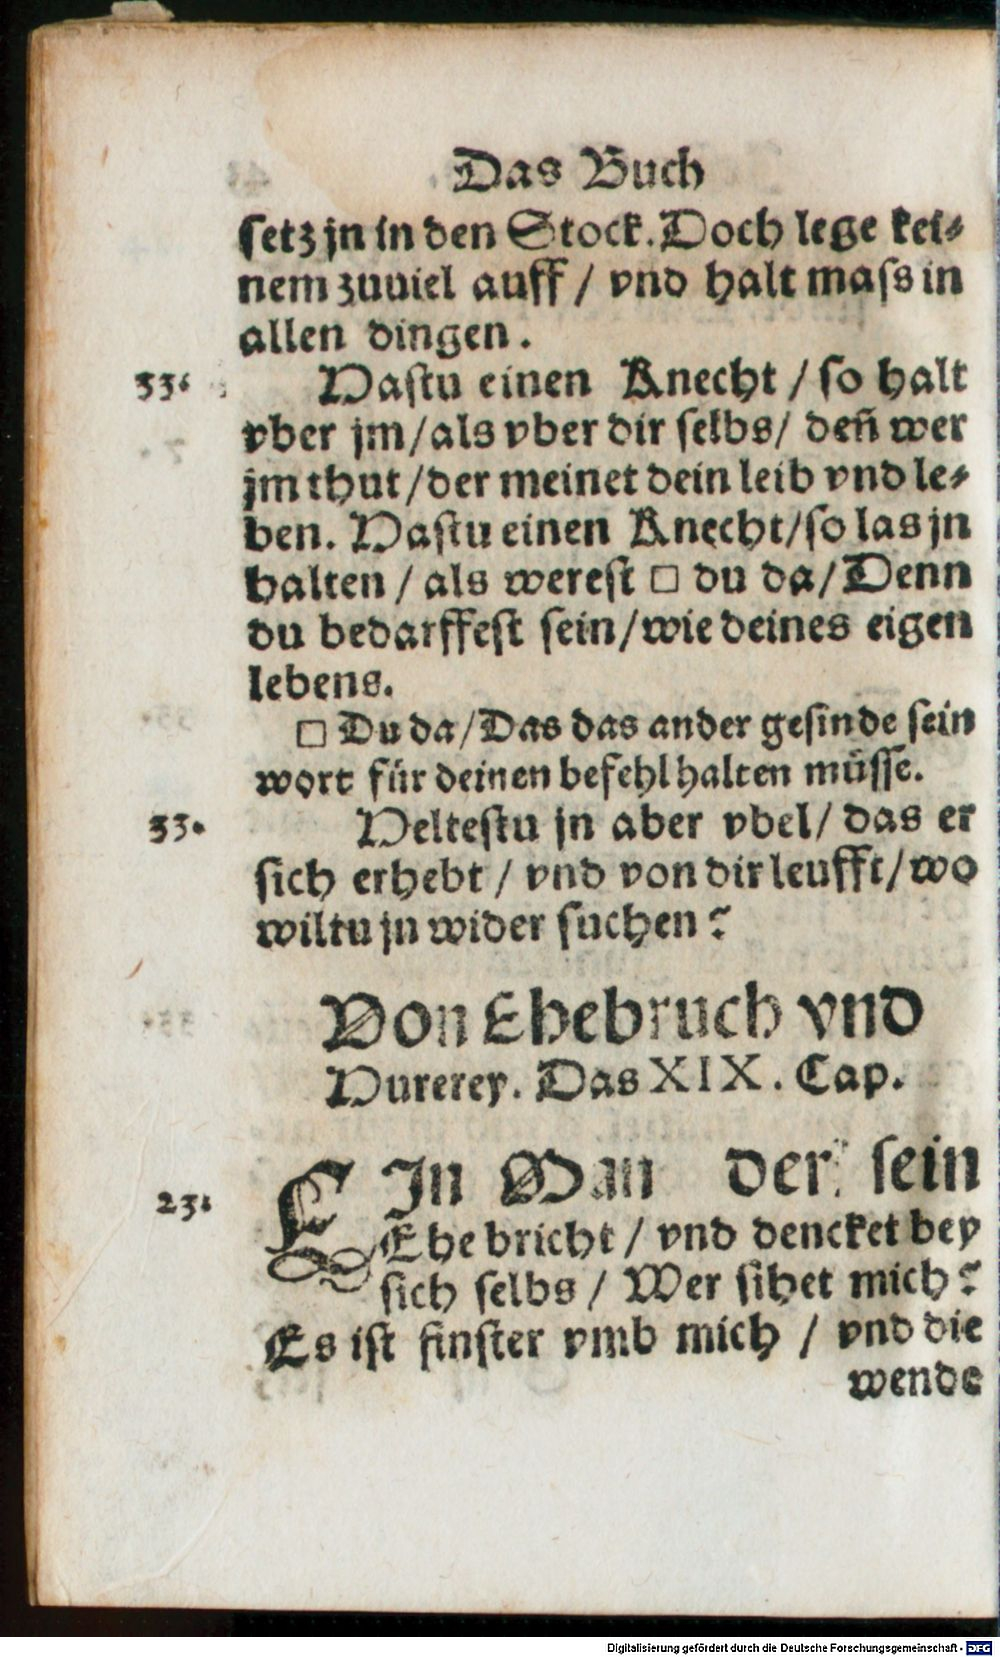 Das Buch
setz jn in den Stock. Doch lege kei⸗
nem zuuiel auff / vnd halt mass in
allen dingen.
33. Hastu einen Knecht / so halt
vber jm / als vber dir selbs / deñ wer
jm thut / der meinet dein leib vnd le⸗
ben. Hastu einen Knecht / so las jn
halten / als werest □ du da / Denn
du bedarffest sein / wie deines eigen
lebens.
□ Du da / Das das ander gesinde sein
wort für deinen befehl halten müsse.
33. Heltestu jn aber vbel / das er
sich erhebt / vnd von dir leufft / wo
wiltu jn wider suchen?
Von Ehebruch vnd
Hurerey. Das XIX. Cap.
23. EIn Man der sein
Ehe bricht / vnd dencket bey
sich selbs / Wer sihet mich?
Es ist finster vmb mich / vnd die
wende
Digitalisierung gefördert durch die Deutsche Forschungsgemeinschaft - DFG